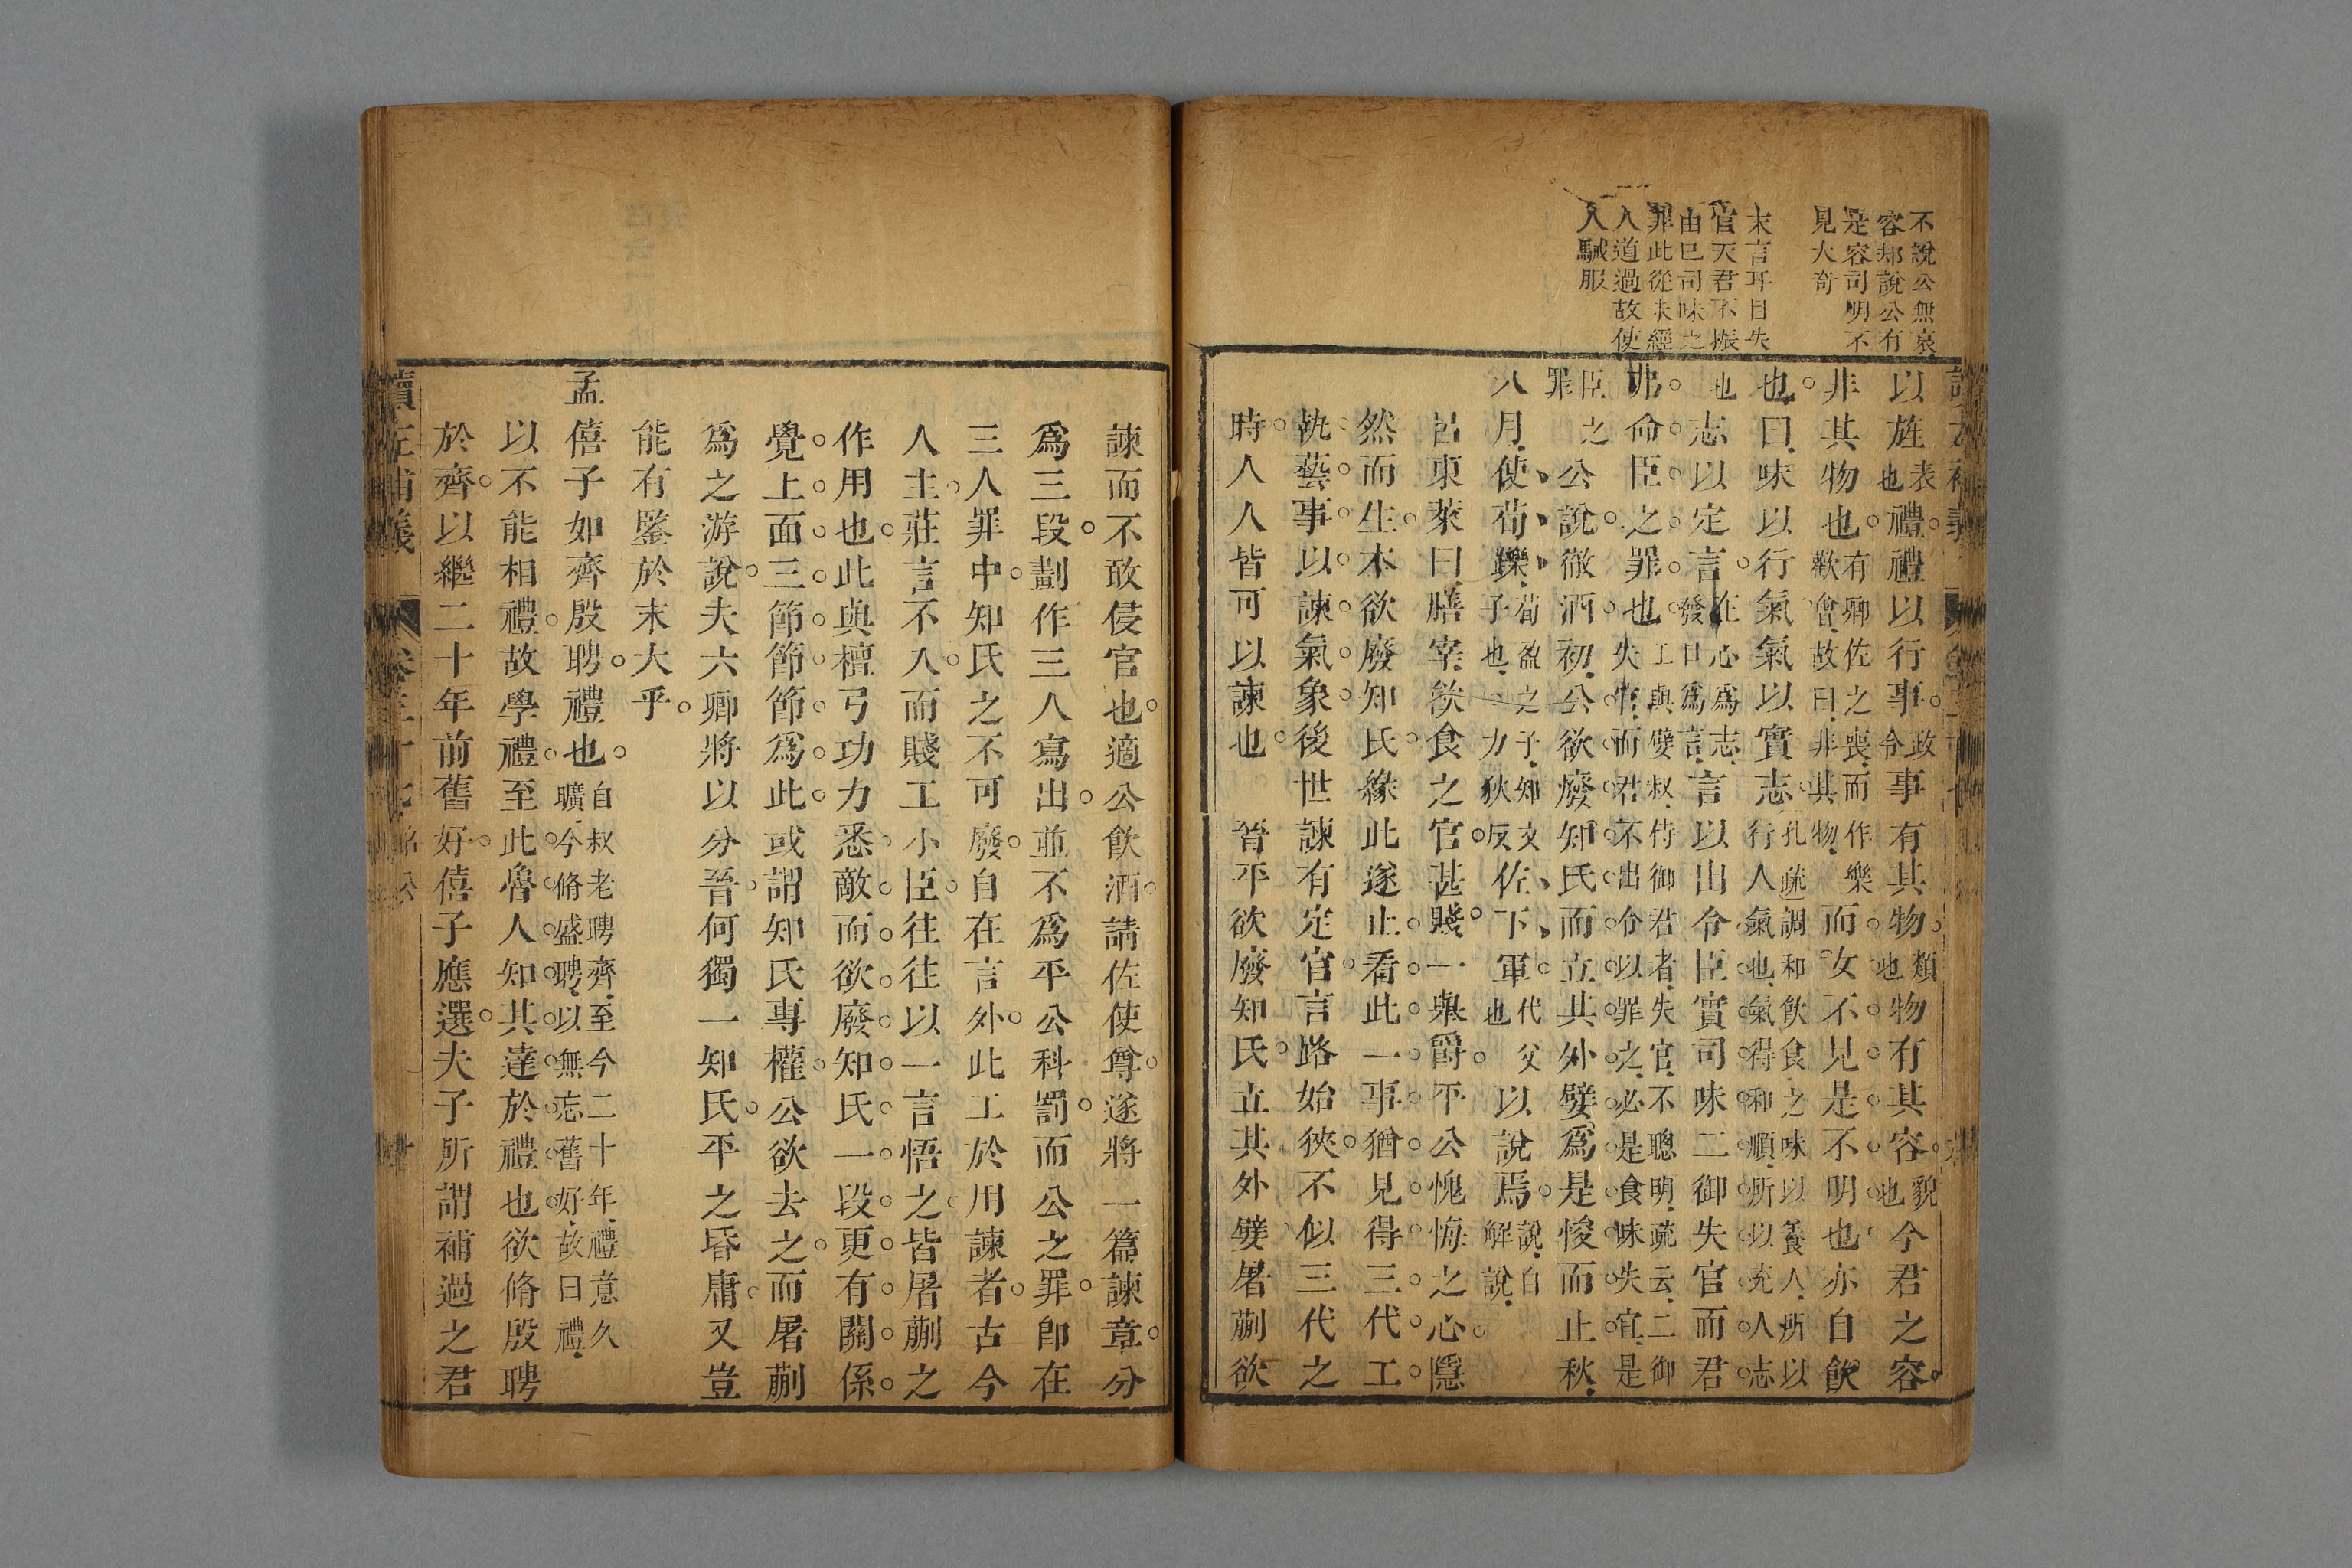 不說公無哀
容却說公有
是容司明不
見大奇
末言耳目失
官天君不振
由巳司味之
罪此從未經
人道過故使
人駴服
以旌表也禮禮以行事政令事有其物類也物有其容貌也今君之容
非其物也有卿佐之喪而作樂歡會故曰非其物而女不見是不明也亦自飲
也曰味以行氣氣以實志孔疏調和飲食之味以養人所以行人氣也氣得和順所以充人志
也志以定言在心爲志發口爲言言以出令臣實司味二御失官而君
弗命臣之罪也工與嬖叔侍御君者失官不聰明疏云二御失官而君不出令以罪之必是食味失宜是
臣之罪公說徹酒初公欲廢知氏而立其外嬖爲是悛而止秋
八月使荀躒荀盈之子知文子也力狄反佐下軍代父也以說焉說自解說
呂東萊曰膳宰飲食之官甚賤一舉爵平公愧悔之心隱
然而生本欲廢知氏緣此遂止看此一事猶見得三代工
執藝事以諫氣象後世諫有定官言路始狹不似三代之
時人人皆可以諫也　晉平欲廢知氏立其外嬖屠蒯欲
諫而不敢侵官也適公飲酒請佐使尊遂將一篇諫章分
爲三段劃作三人寫出並不爲平公科罰而公之罪卽在
三人罪中知氏之不可廢自在言外此工於用諫者古今
人主莊言不入而賤工小臣往往以一言悟之皆屠蒯之
作用也此與檀弓功力悉敵而欲廢知氏一段更有關係
覺上面三節節節爲此或謂知氏專權公欲去之而屠蒯
爲之游說夫六卿將以分晉何獨一知氏平之昏庸又豈
能有鑒於末大乎
孟僖子如齊殷聘禮也自叔老聘齊至今二十年禮意久曠今脩盛聘以無忘舊好故曰禮
以不能相禮故學禮至此魯人知其達於禮也欲脩殷聘
於齊以繼二十年前舊好僖子應選夫子所謂補過之君
讀左補義